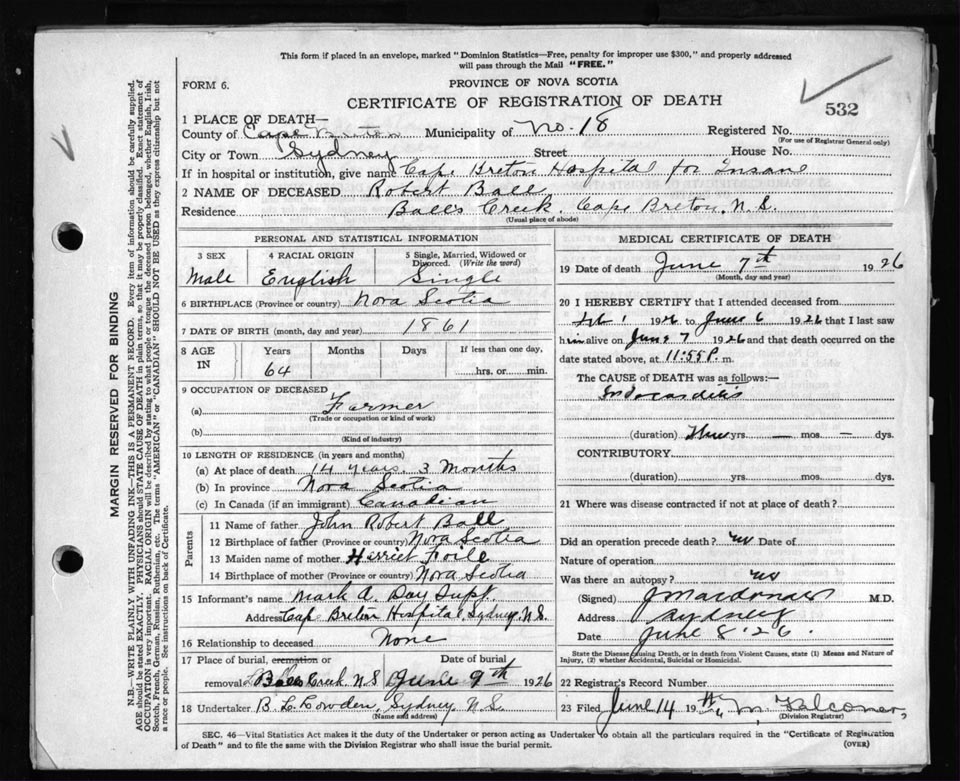 This form if placed in an envelope, marked "Dominion Statistics—Free, penalty for improper use $300," and properly addressed
will pass through the Mail "FREE."
FORM 6.
PROVINCE OF NOVA SCOTIA
CERTIFICATE OF REGISTRATION OF DEATH
532
1 PLACE OF DEATH—
County of Cape Breton Municipality of No. 18 Registered No.
(For use of Registrar General only)
City or Town Sydney Street House No.
If in hospital or institution, give name Cape Breton Hospital for Insane
2 NAME OF DECEASED Robert Ball
Residence Ball's Creek, Cape Breton, N.S.
(Usual place of abode)
PERSONAL AND STATISTICAL INFORMATION
3 SEX 4 RACIAL ORIGIN 5 Single, Married, Widowed or Divorced. (Write the word)
Male English Single
6 BIRTHPLACE (Province or country) Nova Scotia
7 DATE OF BIRTH (month, day and year) 1861
8 AGE IN Years Months Days If less than one day,
64 hrs. or min.
9 OCCUPATION OF DECEASED
(a) Farmer
(Trade or occupation or kind of work)
(b)
(Kind of industry)
10 LENGTH OF RESIDENCE (in years and months)
(a) At place of death 14 years. 3 Months
(b) In province Nova Scotia
(c) In Canada (if an immigrant) Canadian
Parents
11 Name of father John Robert Ball
12 Birthplace of father (Province or country) Nova Scotia
13 Maiden name of mother Harriet
14 Birthplace of mother (Province or country) Nova Scotia
15 Informant's name Mark A. Day Supt.
Address Cape Breton Hospital, Sydney, N.S.
16 Relationship to deceased None
17 Place of burial, cremation or Date of burial
removal Balls Creek N.S June 9th 1926
18 Undertaker Sydney N.S.
(Name and address)
MEDICAL CERTIFICATE OF DEATH
19 Date of death June 7th 1926
(Month, day and year)
20 I HEREBY CERTIFY that I attended deceased from
1926 to June 6 1926 that I last saw
him alive on June 7 1926 and that death occurred on the
date stated above, at 11:55 P. m.
The CAUSE of DEATH was as follows:—
Endocarditis
(duration) Three yrs. — mos. — dys.
CONTRIBUTORY
(duration) yrs. mos. dys.
21 Where was disease contracted if not at place of death?
Did an operation precede death? no Date of
Nature of operation
Was there an autopsy? no
(Signed) M.D.
Address Sydney
Date June 8. 26.
State the Disease causing Death, or in death from Violent Causes, state (1) Means and Nature of
Injury, (2) whether Accidental, Suicidal or Homicidal.
22 Registrar's Record Number
23 Filed June 14 19 Falconer
(Division Registrar)
SEC. 46—Vital Statistics Act makes it the duty of the Undertaker or person acting as Undertaker to obtain all the particulars required in the "Certificate of Registration
of Death" and to file the same with the Division Registrar who shall issue the burial permit.
(OVER)
MARGIN RESERVED FOR BINDING
N.B.—WRITE PLAINLY WITH UNFADING INK—THIS IS A PERMANENT RECORD. Every item of information should be carefully supplied.
AGE should be stated EXACTLY. PHYSICIANS should STATE CAUSE OF DEATH in plain terms, so that it may be properly classified. Exact statement of
OCCUPATION is very important. RACIAL ORIGIN will be described by stating to what people or tongue the deceased person belonged, whether English, Irish,
Scotch, French, German, Russian, Ruthenian, etc. The terms "AMERICAN" or "CANADIAN" SHOULD NOT BE USED as they express citizenship but not
a race or people. See instructions on back of Certificate.